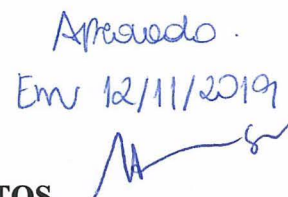 Aprovado.
Em 12/11/2019
TOS